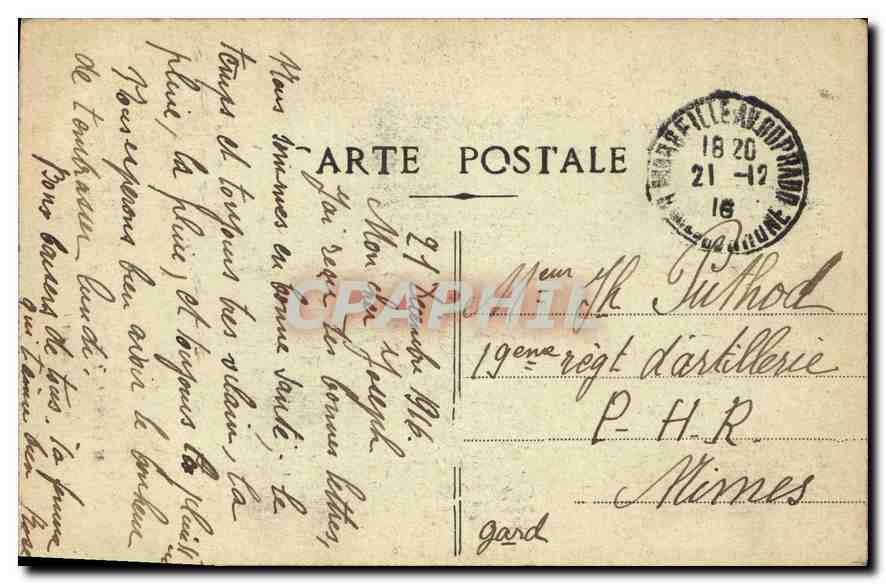 CARTE POSTALE
MARSEILLE
18 20
21 -12
16
21 Décembre 916.
Mon cher Joseph
J'ai reçu tes bonnes lettres,
Nous sommes en bonne santé, le
temps et toujours tres vilain, la
pluie, la pluie, et toujours la pluie
Nous esperons bien avoir le bonheur
de t'embrasser lundi.
Bons baisers de tous. Ta femme
qui t'aime bien
Mr Jh Puthod
19eme règt d'artillerie
P-H.R.
Nimes
gard
CPAPHIL